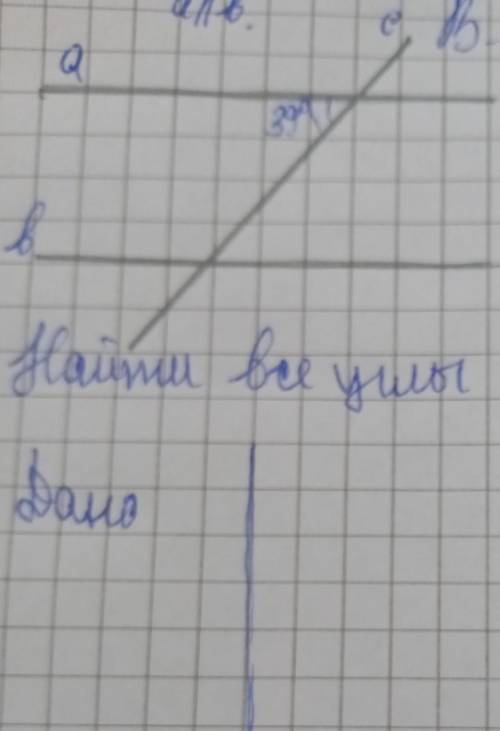 a || в.
с В.
a
39°
в
Найти все углы
Дано